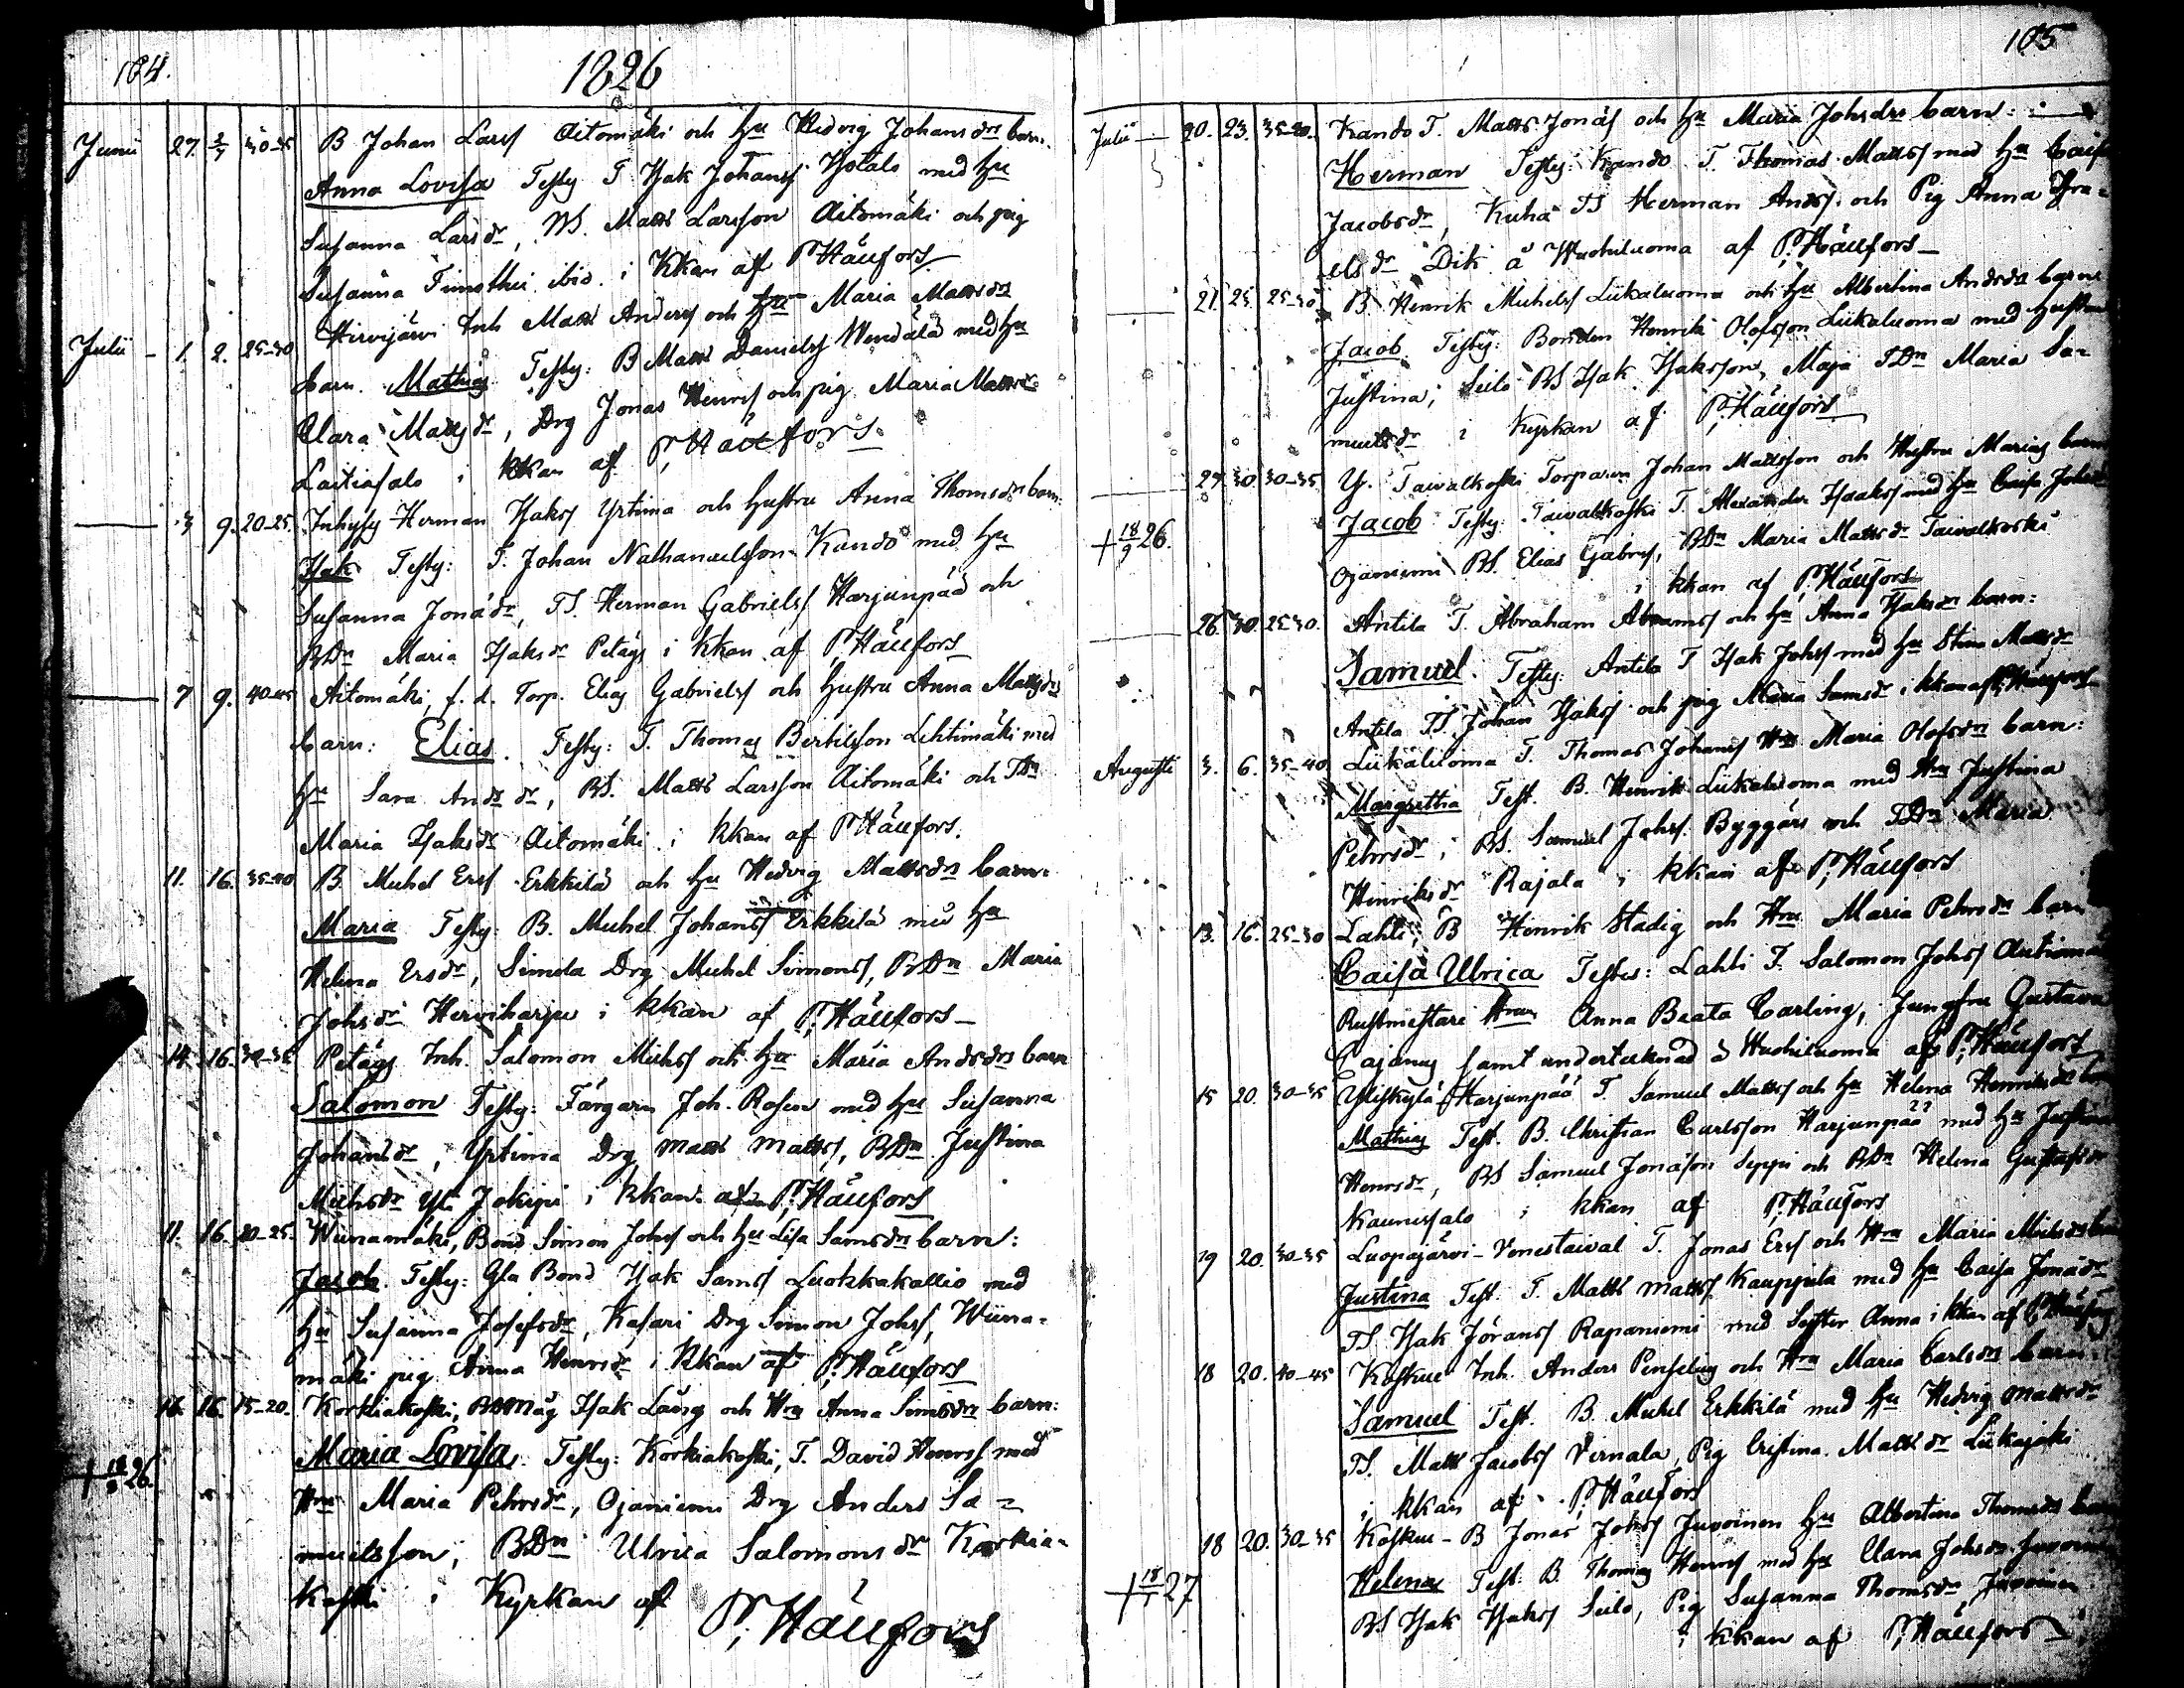 104.
1826
Junii 27. 2/7 40-45 B Johan Larsf Aitomäki och hu Hedvig Johansdrs barn.
Anna Lovisa Testg T Isak Johansf Hotalo med hu
Susanna Larsdr, BS. Matts Larsson Aitomäki och pig
Susanna Timothei ibid. i Kkan af P. Häufors
Julii - 1. 2. 25-30 Hirvijärvi Inh Matts Andersf och hu Maria Mattsdrs
barn. Mathias Testg: B Matts Danielsf Wendälä med hu
Clara Mattsdr, Drg Jonas Henrsf och pig Maria Mattsdr
Laitiasalo i kkan af P. Häufors.
3 9. 20-25. Inhysg Herman Isaksf Yrtima och hustru Anna Thomsdrs barn.
Isak Testg: T. Johan Nathanaelsson Kando med hu
Susanna Jonædr, TS. Herman Gabrielsf Harjunpää och
BDn Maria Isaksdr Petäys i Kkan af P. Häufors
7 9. 40-45 Aitomäki, f. d. Torp. Elias Gabrielsf och hustru Anna Mattsdrs
barn: Elias. Testg: T. Thomas Bertilsson Lehtimäki med
hu Sara Andrdr, BS. Matts Larsson Aitomäki och TDn
Maria Isaksdr Aitomäki i kkan af P. Häufors.
11. 16. 35-40 B. Michel Ersf Erkkilä och hu Hedvig Mattsdrs barn.
Maria Testg: B. Michel Johansf Erkkilä med hu
Helena Ersdr, Simola Drg Michel Simonsf, BDn Maria
Johsdr Herviharju i kkan af P. Häufors
14. 16. 30-35 Petäys Inh. Salomon Michsf och hu Maria Andrsdrs barn
Salomon Testg: Färgarn Joh. Rosen med hu Susanna
Johansdr, Yrtima Drg Matts Mattsf, BDn Justina
Michsdr Yli Jokipi i kkan af P. Häufors
11. 16. 20-25. Wiinamäki, Bond Simon Johsf och hu Lisa Samsdrs barn:
Jacob. Testg: Gla Bond Isak Samsf Luotkkakallio med
hu Susanna Josefsdr, Kasari Drg Simon Johsf, Wiina-
mäki pig Anna Henrsdr i kkan af P. Häufors
16. 16. 15-20. Korkiakoski, Bmåg Isak Lång och Hru Anna Simsdrs barn:
Maria Lovisa. Testg: Korkiakoski, T. David Henrsf med
26.
Hru Maria Pehrsdr, Ojaniemi Drg Anders Sa-
muelsson, BDn Ulrica Salomonsdr Korkia-
koski i Kyrkan af P. Häufors
105
Julii 20. 23. 35-40. Kando T. Matts Jonæf och hu Maria Johsdrs barn:
Herman Testg: Kando T. Thomas Mattsf med hu Caisa
Jacobsdr, Kuha TS Herman Andsf. och Pig Anna Isra-
elsdr Dik å Huohiluoma af P. Häufors
21. 23. 25-30 B. Henrik Michelsf Liikaluoma och hu Albertina Andrsdrs barn
Jacob. Testg: Bonden Henrik Olofsson Liikaluoma med hustru
Justina, Seilo BS Isak Isaksson, Maja TDn Maria Sa-
muelsdr i Kyrkan af P. Häufors
29. 30 30-35 Y. Taivalkoski Torparen Johan Mattsson och Hustru Marias barn
Jacob Testg: Taivalkoski T. Alexander Isaaksf med hu Caisa Johsdr
+ 18/9 26.
Ojaniemi BS. Elias Gabrsf, BDn Maria Mattsdr Taivalkoski
i kkan af P. Häufors
26. 30. 25-30. Antila T. Abraham Abramsf och hu Anna Isaksdrs barn:
Samuel. Testg: Antila T Isak Johsf med hu Stina Mattsdr
Antila TS. Johan Isaksf och pig Maria Samsdr i kkan af P. Häufors
Augusti 3. 6. 35-40 Liikaluoma T. Thomas Johansf Hru Maria Olofsdrs barn:
Margretha Test. B. Henrik Liikaluoma med Hru Justina
Pehrsdr, BS. Samuel Johsf. Byggärs och TDn Maria
Henriksdr Rajala i kkan af P. Häufors
13. 16. 25-30 Lahti, B Henrik Stadig och Hru Maria Pehrsdrs barn
Caisa Ulrica Testes: Lahti T. Salomon Johsf Autioma
Rustmestare Hrun Anna Beata Carling, Jungfru Gustava
Cajanus samt undertecknad å Huohiluoma af P. Häufors
15 20. 30-35 Yliskylä Harjunpää T. Samuel Mattsf och hu Helena Henriksdrs barn
Mathias Test. B. Christian Carlsson Harjunpää med hu Justina
Henrsdr, BS Samuel Jonæson Seppi och BDn Helena Gustafsdr
Kaunissalo i kkan af P. Häufors
19 20. 30-35 Luopajärvi-Venestaival T. Jonas Ersf och Hru Maria Michsdrs barn
Justina Test. T. Matts Mattsf Kauppila med hu Caisa Jonædr
TS. Isak Jöransf Rapaniemi med Syster Anna i kkan af P. Häufors
18 20. 40-45 Koskue Inh. Anders Penselin och Hru Maria Carlsdrs barn:
Samuel Test. B. Michel Erkkilä med hu Hedvig Mattsdr
TS. Matts Jacobsf Virnala, Pig Cristina Mattsdr Liikajoki
i kkan af P. Häufors
18 20. 30-35 Koskue - B Jonas Johsf Juvoinen hu Albertina Thomsdrs barn
Helena Test: B. Thomas Henrsf med hu Clara Johsdr Juvoinen
+ 18/1 27
BS Isak Isaksf Seilo, Pig Susanna Thomsdr, Juvoinen
i kkan af P. Häufors